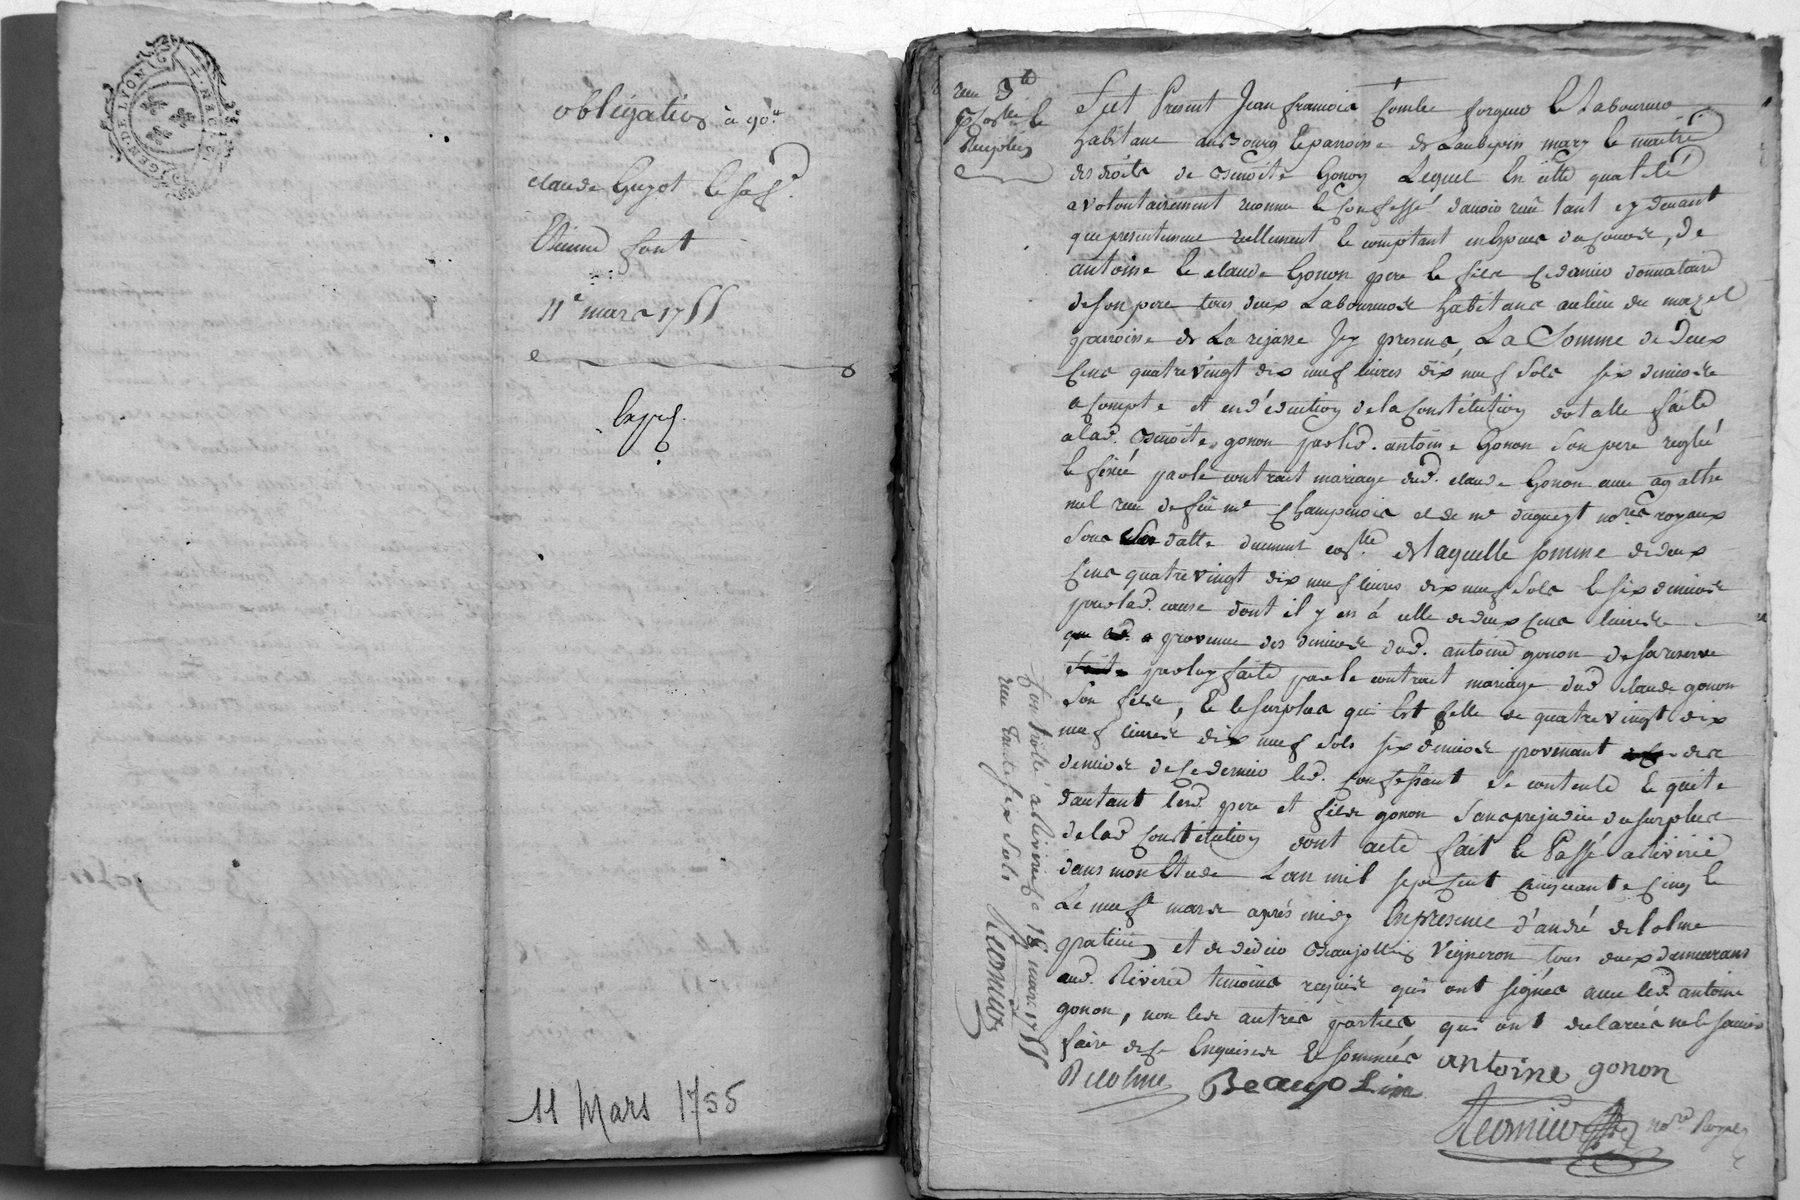 GEN. DE LYON
obligation à 90.
claude Guyot
Etienne font
11e mars 1755
Expé.
11 Mars 1755
Fut Present Jean francois Combe forgeur & Laboureur
habitant au Bourg & parroisse de Laubepin mary & maitre
des droits de Benoite Gonon Lequel En cette qualité
a volontairement reconnu & Confessé d'avoir receu tant cy devant
que presentement reellement & comptant en Especes du Cours, de
antoine & claude Gonon pere & fils ce dernier donnataire
de son pere tous deux Laboureurs habitans au lieu du mazel
parroisse de La rajasse Icy presens, La Somme de Deux
Cens quatre vingt dix neuf livres dix neuf Sols Six deniers
a Compte et en déduction de la Constitution dotalle faite
a lad. Benoite gonon par led. antoine Gonon Son pere reglée
& fixée par le contrait mariage dud. claude Gonon avec agathe
receu de feu me Champenois et de me Dugueyt nores royaux
Sous Sa datte duement coslle de laquelle Somme de deux
Cens quatre vingt dix neuf livres dix neuf Sols & Six deniers
pour lad. cause dont il y en a celle de deux Cens livres
provenue des deniers dud. antoine gonon de sa reserve
par luy faite par le contrait mariage dud. claude gonon
Son fils, & le Surplus qui Est Celle de quatre vingt dix
neuf livres dix neuf Sols Six deniers provenant des
deniers de Ce dernier led. Confessant Se contente & quite
d'autant lesd. pere et fils gonon Sans prejudice du Surplus
de lad. Constitution dont acte fait & Passé a Riverie
dans mon Etude L'an mil Sept Cent Cinquante Cinq &
Le neuf mars après midy En presence d'andré delolme
praticien et de didier Beaujollin Vigneron tous deux demeurans
aud. Riverie temoins requis qui ont Signés avec led. antoine
gonon, non les autres parties qui ont declarées ne le Scavoir
faire de ce Enquises & Sommées antoine gonon
Delolme Beaujolin
nore Royal
Controllé a Riverie Ce 18e mars 1755
receu Trente Six Sols